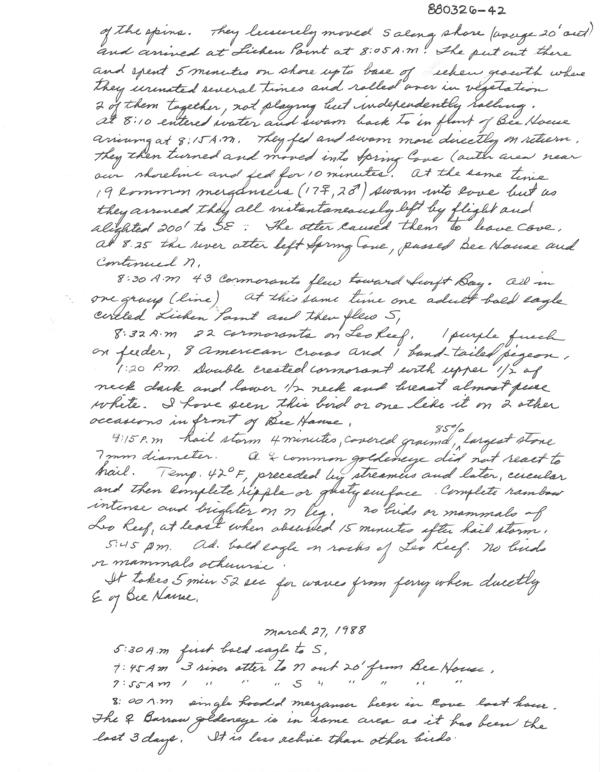 880326-42
of the spins. They leisurely moved S along shore (average 20' out)
and arrived at Lichen Point at 8:05 A.M. The put out there
and spent 5 minutes on shore up to base of lichen growth where
they urinated several times and rolled over in vegetation
2 of them together, not playing but independently rolling.
At 8:10 entered water and swam back to in front of Bee House
arriving at 8:15 A.M. They fed and swam more directly on return.
They then turned and moved into Spring Cove (outer area near
our shoreline and fed for 10 minutes. At the same time
19 common mergansers (17♀, 2♂) swam into cove but as
they arrived they all instantaneously left by flight and
alighted 200' to SE. The otter caused them to leave cove.
At 8:25 the river otter left Spring Cove, passed Bee House and
continued N.
8:30 A.M 43 cormorants flew toward Swift Bay. All in
one group (line). At this same time one adult bald eagle
circled Lichen Point and then flew S,
8:32 A.M 22 cormorants on Leo Reef. 1 purple finch
on feeder, 8 American crows and 1 band-tailed pigeon.
1:20 P.M. Double crested cormorant with upper 1/2 of
neck dark and lower 1/2 neck and breast almost pure
white. I have seen this bird or one like it on 2 other
occasions in front of Bee House.
4:15 P.m hail storm 4 minutes, covered ground 85%, largest stone
7mm diameter. A ♀ common goldeneye did not react to
hail. Temp. 42°F, preceded by streamers and later, circular
and then complete ripple or gusty surface. Complete rainbow
intense and brighter on N leg. No birds or mammals of
Leo Reef, at least when observed 15 minutes after hail storm.
5:45 pm. Ad. bald eagle on rocks of Leo Reef. No birds
or mammals otherwise.
It takes 5 min 52 sec for waves from ferry when directly
E of Bee House.
March 27, 1988
5:30 A.m first bald eagle to S.
7:45 A.m 3 river otter to N out 20' from Bee House.
7:55 A.m 1 " " " S " " " " "
8:00 A.m single hooded merganser been in cove last hour.
The ♀ Barrow goldeneye is in same area as it has been the
last 3 days. It is less active than other birds.